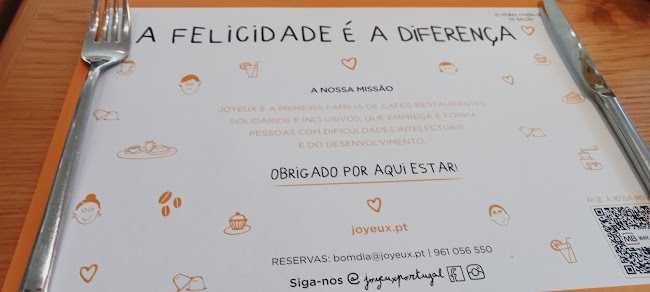 A FELICIDADE É A DIFERENÇA
A NOSSA MISSÃO
JOYEUX É A PRIMEIRA FAMÍLIA DE CAFÉS-RESTAURANTES
SOLIDÁRIOS E INCLUSIVOS, QUE EMPREGA E FORMA
PESSOAS COM DIFICULDADES INTELECTUAIS
E DO DESENVOLVIMENTO.
OBRIGADO POR AQUI ESTAR!
joyeux.pt
RESERVAS: bomdia@joyeux.pt | 961 056 550
Siga-nos @ joyeuxportugal
MB
WAY